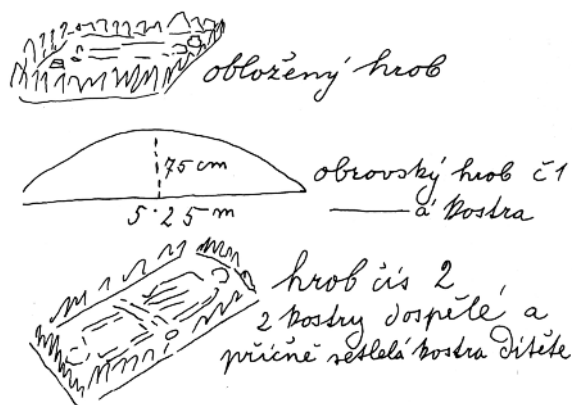 obložený hrob
75 cm
5.25 m
obrovský hrob č1
á kostra
hrob čís 2
2 kostry dospělé a
příčně setlelá kostra dítěte